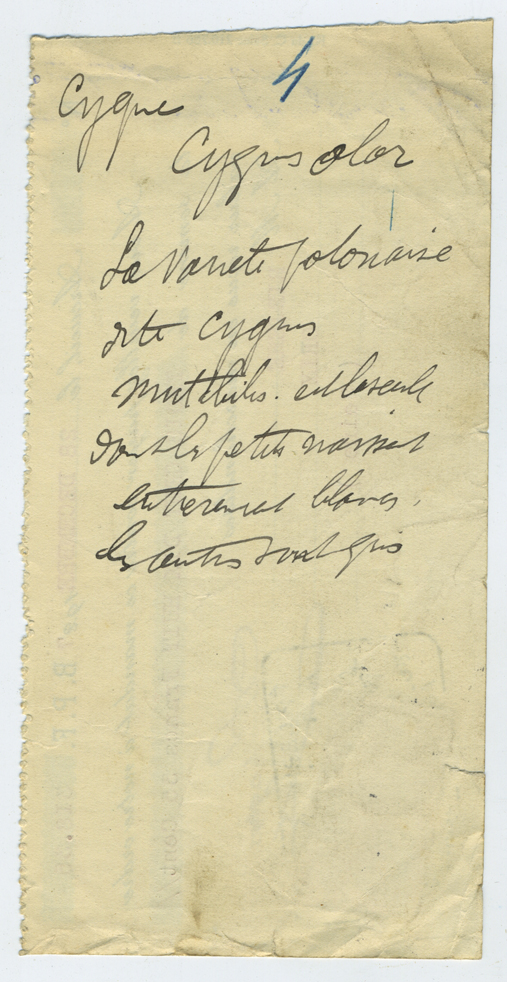 4
Cygne
Cygnus olor
La Variete polonaise
dite Cygnus
mutabilis. est la seule
dont les petits naissent
entierement blancs.
les autres sont gris